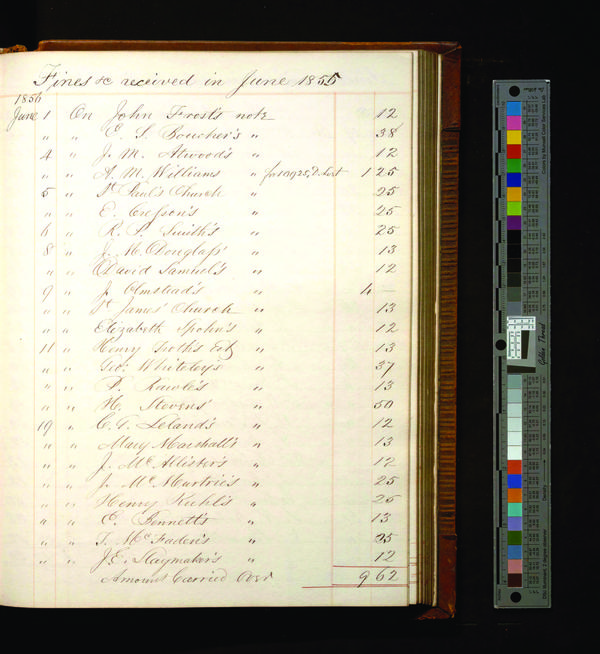 Fines &c received in June 1855
1856
June 1 On John Frost's note 12
" " E. S. Boucher's " 38
4 " J. M. Atwood's " 12
" " A. M. Williams " for No 925, 2. Lost 1 25
5 " St Paul's Church " 25
" " E. Cresson's " 25
6 " R. P. Smith's " 25
8 " J. M. Douglass' " 13
" " David Samuel's " 12
9 " J. Olmstead's " 4 —
" " St James' Church " 13
" " Elizabeth Spohn's " 12
11 " Henry Troth's Est " 13
" " Geo: Whiteley's " 37
" " P. Rawle's " 13
" " H. Stevens' " 50
19 " C. G. Leland's " 12
" " Mary Marshall's " 13
" " J. Mc Allister's " 12
" " J. Mc Murtrie's " 25
" " Henry Kuhl's " 25
" " C. Bennett's " 13
" " T. Mc Faden's " 25
" " J. E. Slaymaker's " 12
Amount Carried Over 9 62